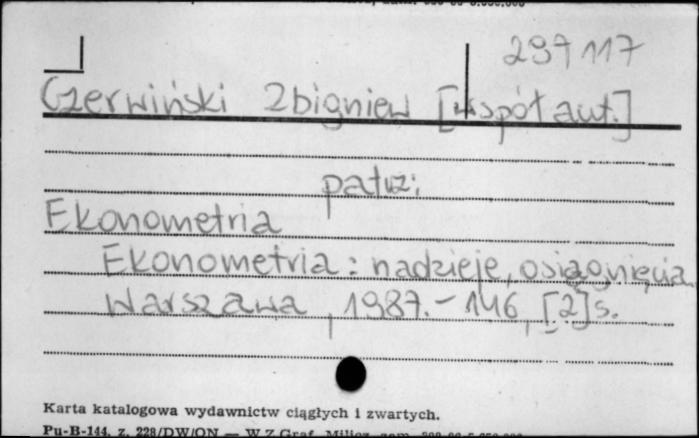 297117
Czerwiński Zbigniew [współaut.]
patrz:
Ekonometria
Ekonometria: nadzieje, osiągnięcia
Warszawa, 1987. – 146, [2] s.
Karta katalogowa wydawnictw ciągłych i zwartych.
Pu-B-144, z. 228/DW/ON — W.Z.Graf. Milicz, zam.